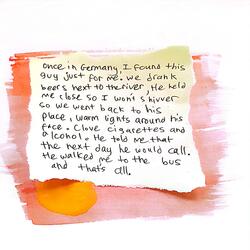 once in Germany I found this
guy just for me. we drank
beers next to the river, He held
me close so I won't shivver
so we went back to his
place, warm lights around his
face. Clove cigarettes and
alcohol. He told me that
the next day he would call.
He walked me to the bus
and that's all.